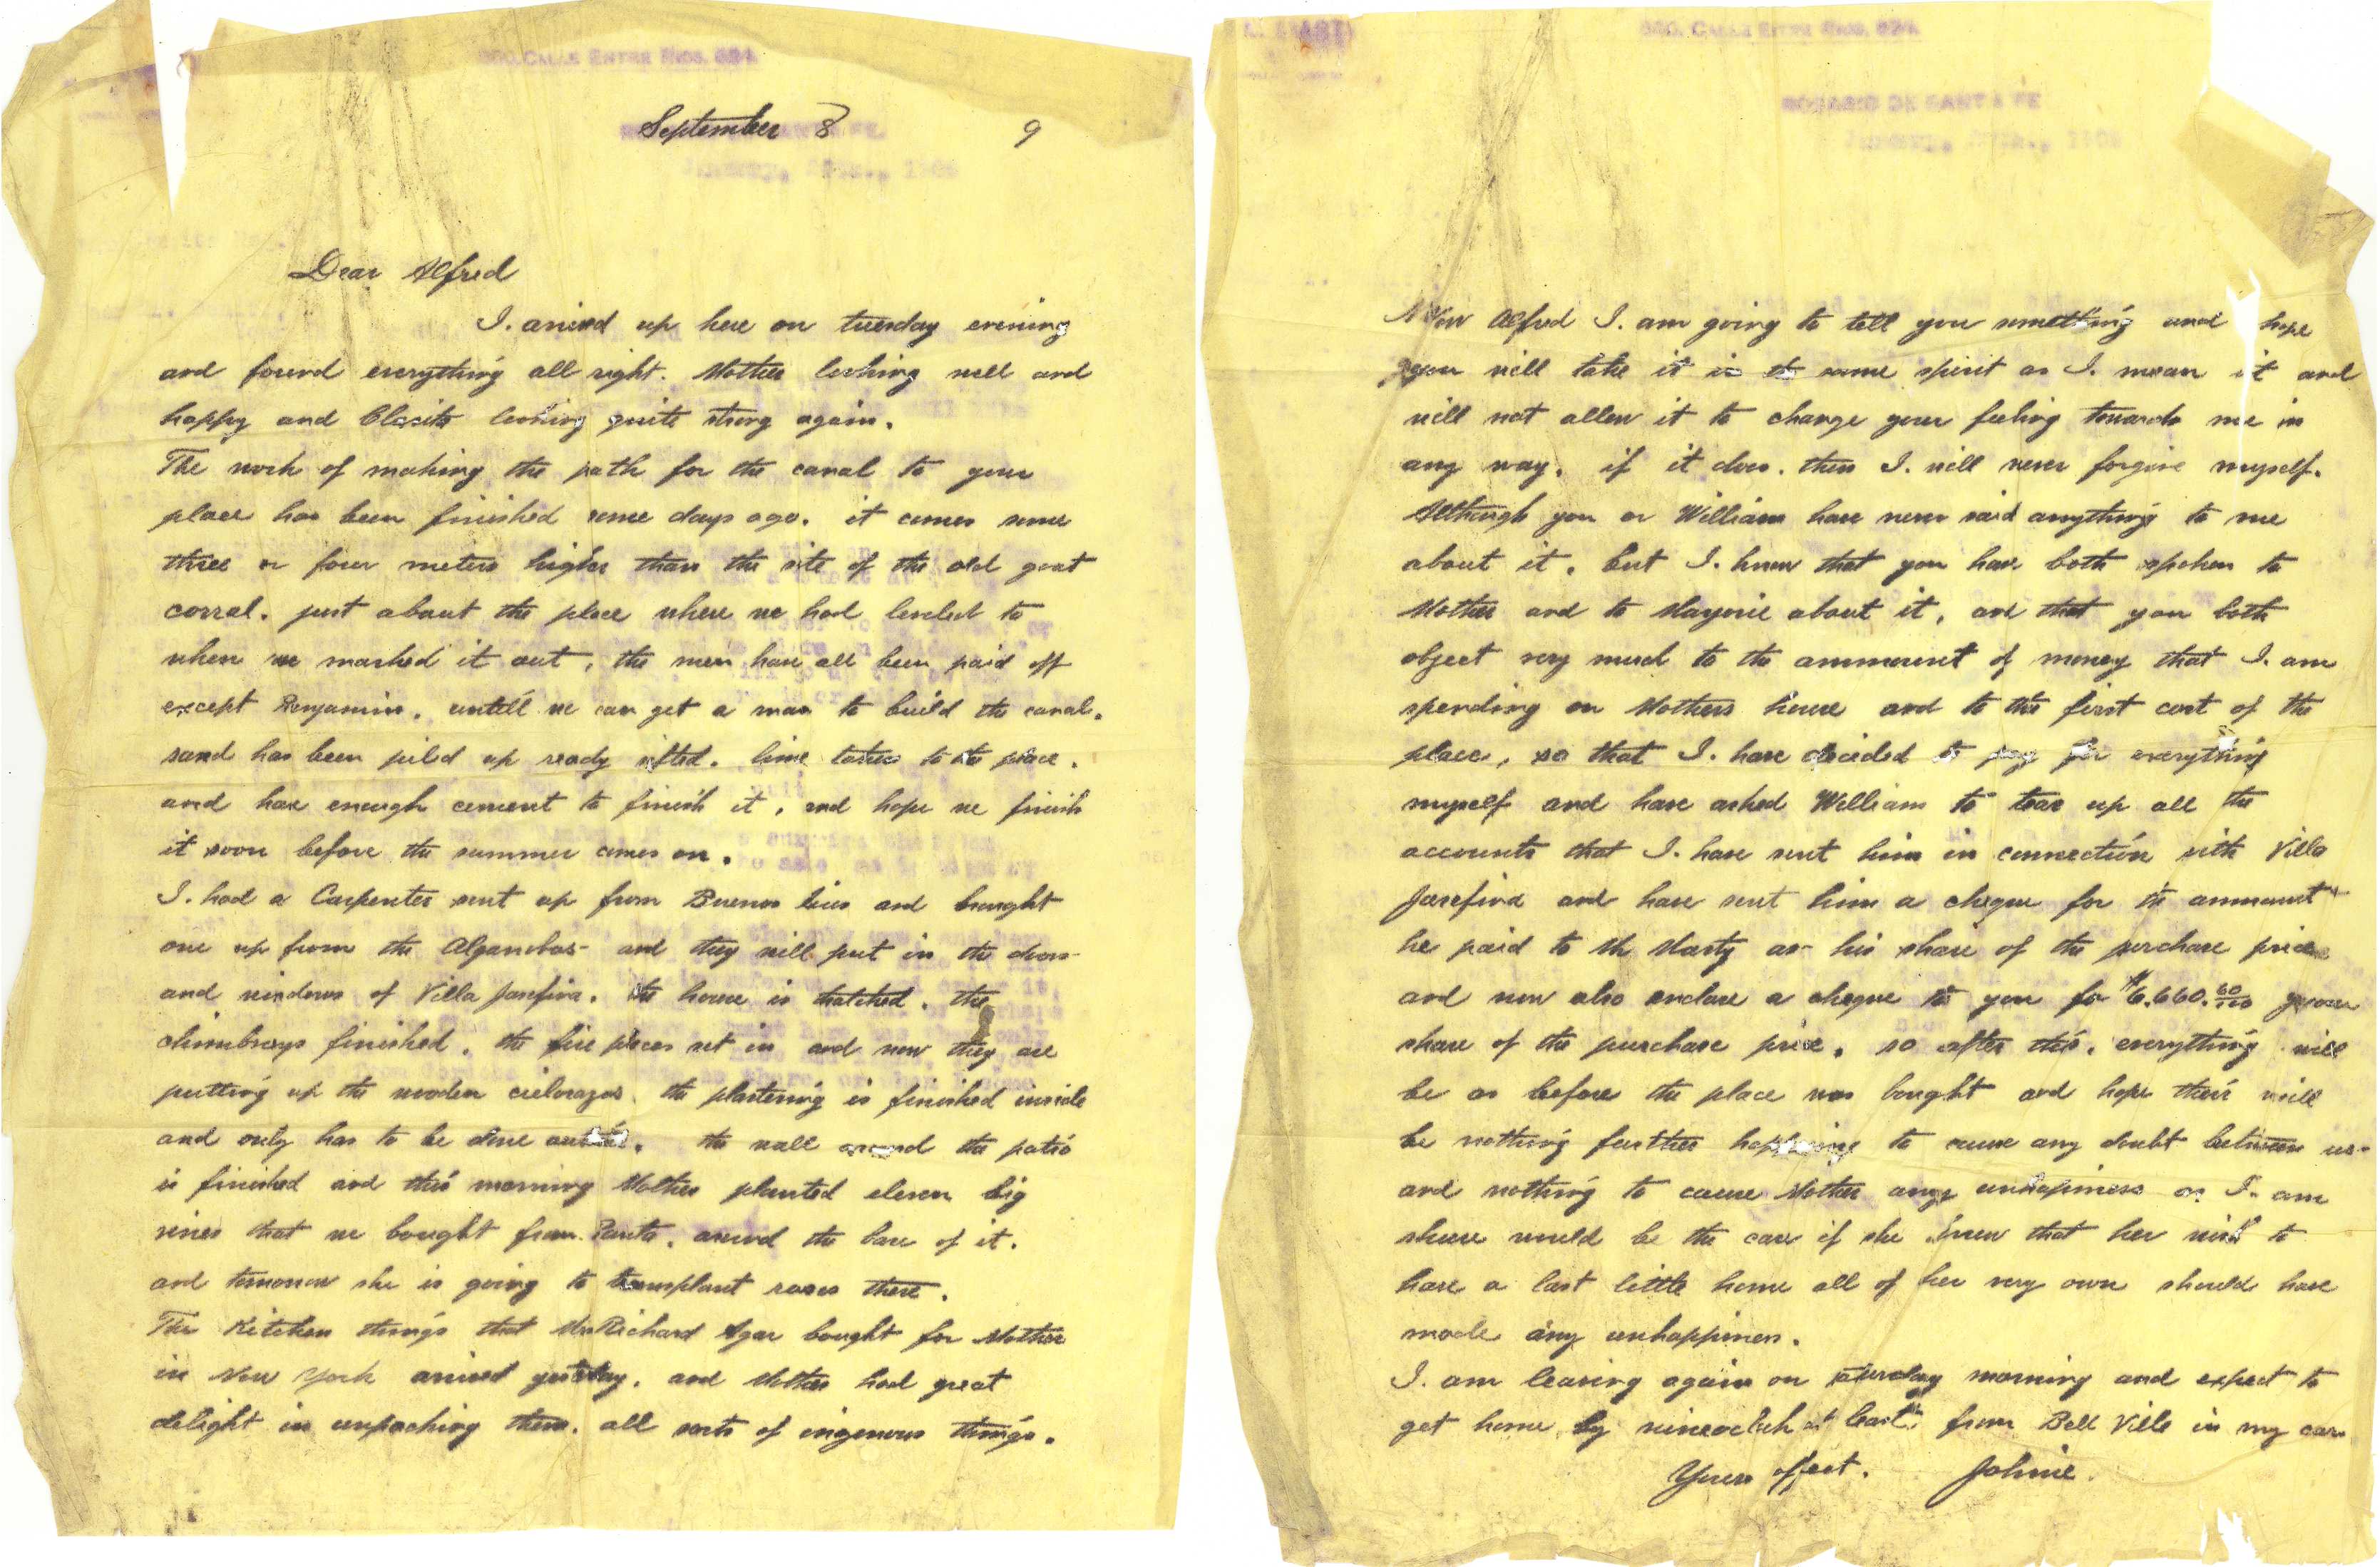 560. CALLE ENTRE RIOS. 624.
September 8 9
Dear Alfred
I. arived up here on tuesday evening
and found everything all right. Mother looking well and
happy and looking quite strong again.
The work of making the path for the canal to your
place has been finished some days ago. it comes some
three or four meters higher than the site of the old goat
corral. just about the place where we had leveled to
when we marked it out, the men have all been paid off
except Benjamin. untill we can get a man to build the canal.
sand has been piled up ready sifted. lime taken to the place.
and have enough cement to finish it, and hope we finish
it soon before the summer comes on.
I. had a Carpenter sent up from Buenos Aires and brought
one up from the Algarrobos and they will put in the doors
and windows of Villa Josefina. the house is thatched. the
chimbneys finished. the fire places set in and now they are
putting up the wooden cielorazos. the plastering is finished inside
and only has to be done outside. the wall around the patio
is finished and this morning Mother planted eleven big
vines that we bought from around the base of it.
and tomorrow she is going to transplant roses there.
The Kitchen things that Mrs Richard Agar bought for Mother
in New York arrived yesterday. and Mother had great
delight in unpacking them. all sorts of ingenous things.
560. CALLE ENTRE RIOS. 624.
ROSARIO DE SANTA FE
Now Alfred I. am going to tell you something and hope
you will take it in the same spirit as I. mean it and
will not allow it to change your feeling towards me in
any way. if it does. then I. will never forgive myself.
Although you or William have never said anything to me
about it. but I. know that you have both spoken to
Mother and to Marjorie about it, and that you both
object very much to the ammount of money that I. am
spending on Mothers house and to the first cost of the
place, so that I. have decided to pay for everything
myself and have asked William to tear up all the
accounts that I. have sent him in connection with Villa
Josefina and have sent him a cheque for the ammount
he paid to Mr Marty as his share of the purchase price
and now also enclose a cheque to you for $6.660.60/100 your
share of the purchase price. so after this. everything will
be as before the place was bought and hope there will
be nothing further happening to cause any doubt between us
and nothing to cause Mother any unhapiness as I. am
shure would be the case if she knew that her wish to
have a last little home all of her very own should have
made any unhappiness.
I. am leaving again on saturday morning and expect to
get home by nineoclok at least from Bell Ville in my car
Yours affect. Johnie.